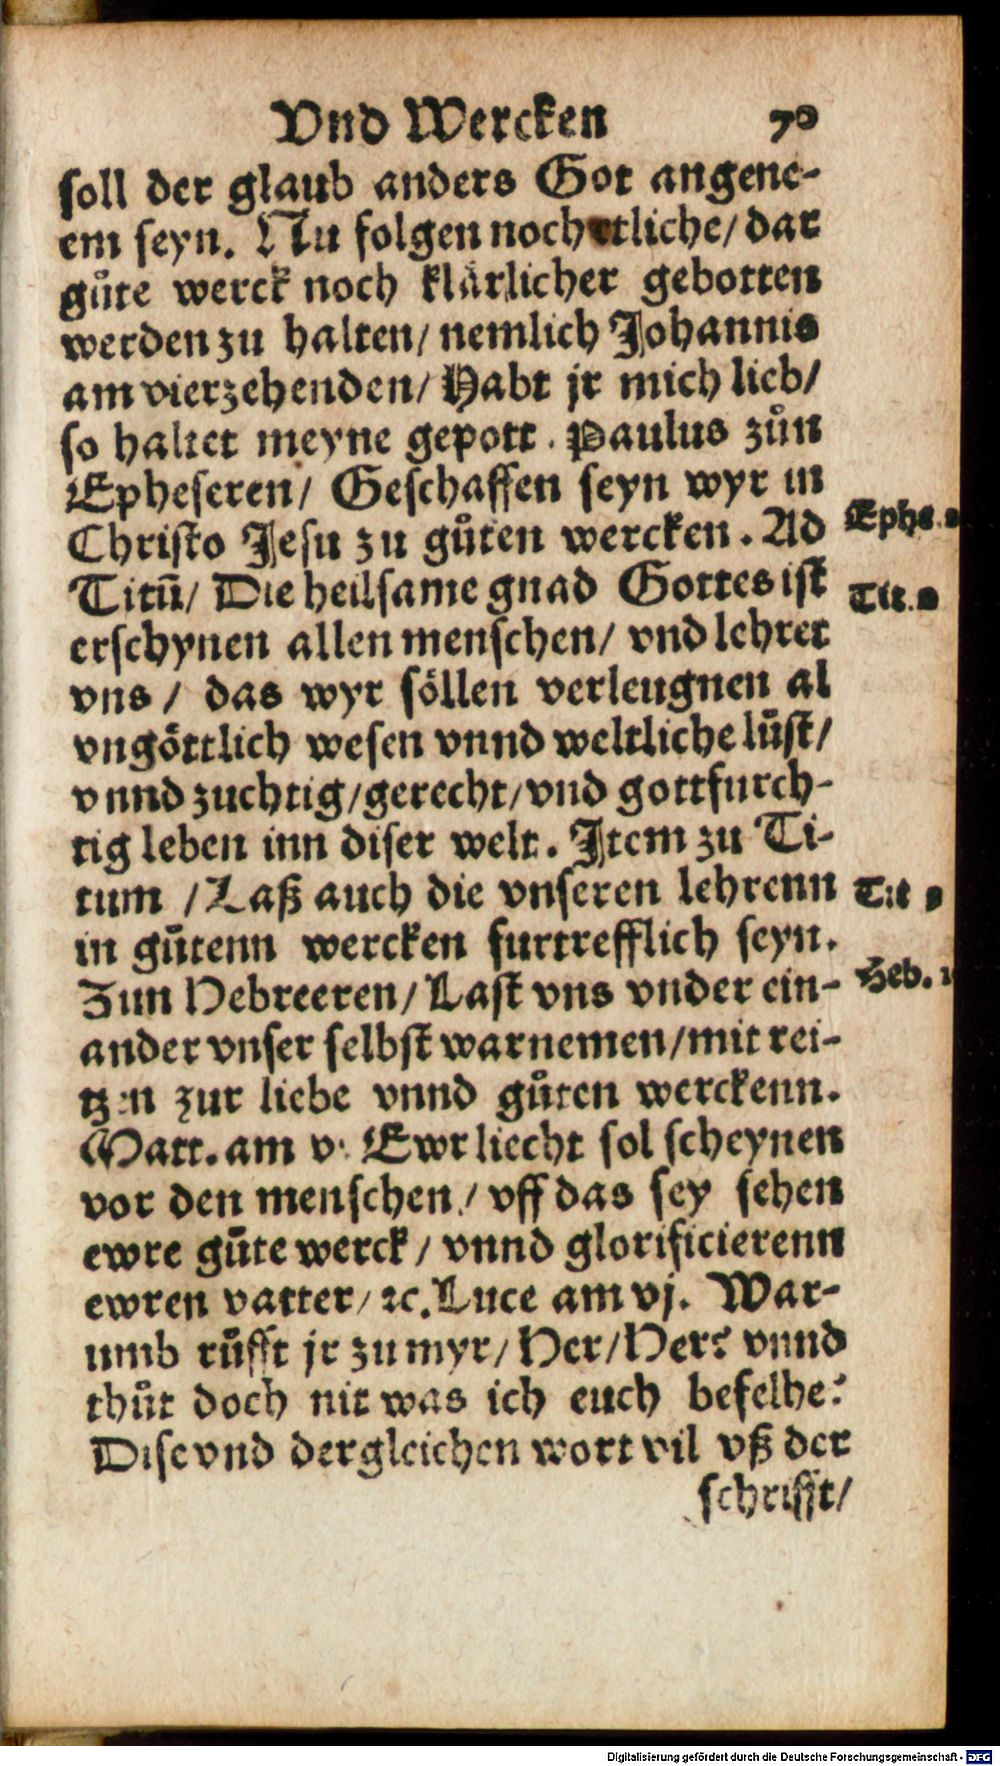 Vnd Wercken 70
soll der glaub anders Got angene-
em seyn. Nu folgen noch etliche/ dar
gůte werck noch klårlicher gebotten
werden zu halten/ nemlich Johannis
am vierzehenden/ Habt jr mich lieb/
so haltet meyne gepott. Paulus zůn
Epheseren/ Geschaffen seyn wyr in
Christo Jesu zu gůten wercken. Ad
Ephe.
Titū/ Die heilsame gnad Gottes ist
Tit.
erschynen allen menschen/ vnd lehret
vns/ das wyr söllen verleugnen al
vngöttlich wesen vnnd weltliche lůst/
vnnd zuchtig/ gerecht/ vnd gottfurch-
tig leben inn diser welt. Jtem zu Ti-
tum/ Laß auch die vnseren lehrenn
Tit
in gůtenn wercken furtrefflich seyn.
Zun Hebreeren/ Last vns vnder ein-
Heb. 1
ander vnser selbst warnemen/ mit rei-
tzen zur liebe vnnd gůten werckenn.
Matt. am v. Ewr liecht sol scheynen
vor den menschen/ vff das sey sehen
ewre gůte werck/ vnnd glorificierenn
ewren vatter/ ꝛc. Luce am vj. War-
umb růfft jr zu myr/ Her/ Her? vnnd
thůt doch nit was ich euch befelhe?
Dise vnd dergleichen wort vil vß der
schrifft/
Digitalisierung gefördert durch die Deutsche Forschungsgemeinschaft - DFG